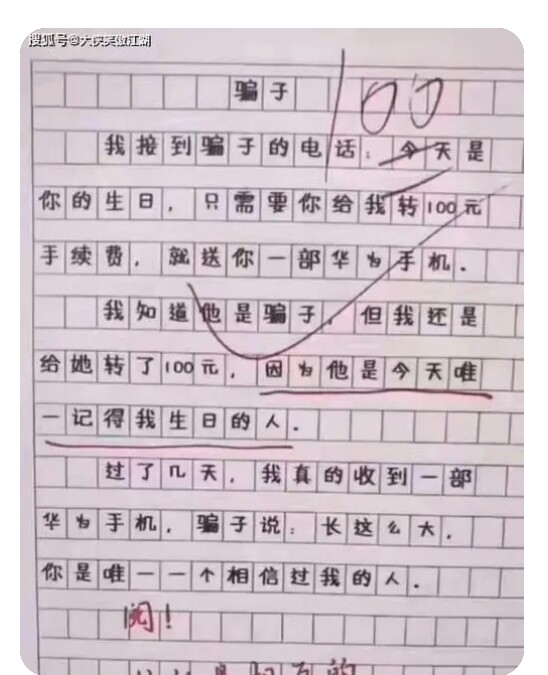 搜狐号@大侠笑傲江湖
骗子 100
我接到骗子的电话：今天是
你的生日，只需要你给我转100元
手续费，就送你一部华为手机.
我知道他是骗子，但我还是
给她转了100元，因为他是今天唯
一记得我生日的人.
过了几天，我真的收到一部
华为手机，骗子说：长这么大，
你是唯一一个相信过我的人.
阅！